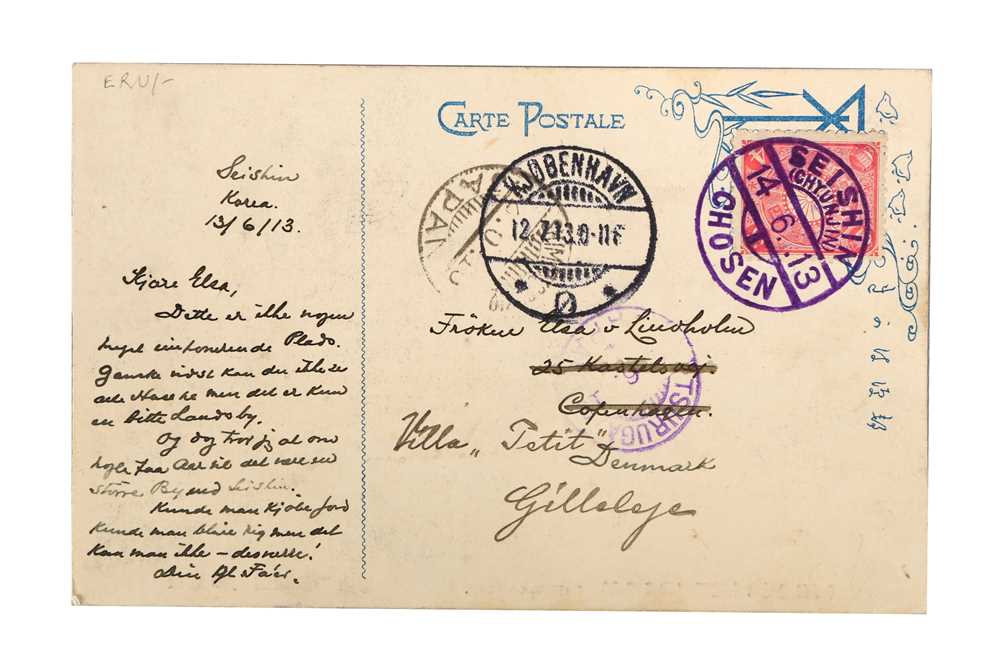 ERU/-
CARTE POSTALE
Seishin
Korea.
13/6/13.
Kjære Elsa,
Dette er ikke nogen
meget imponerende Plads.
Ganske vidst kan du ikke se
alle Husene men det er kun
en lille Landsby.
Og dog tror jeg at om
nogle faa Aar vil det være en
större By end Seishin.
Kunde man Kjøbe Jord
kunde man blive rig men det
kan man ikke – desværre!
Din
JAPAN
KJØBENHAVN
12.7.13.
Ø
SEISHIN
(CHYUNJIN)
14.6.13
CHOSEN
Fröken Elsa v Lindholm
25 Kastelsvej.
Copenhagen.
TSURUGA
Villa „Petit"
Denmark
Gilleleje